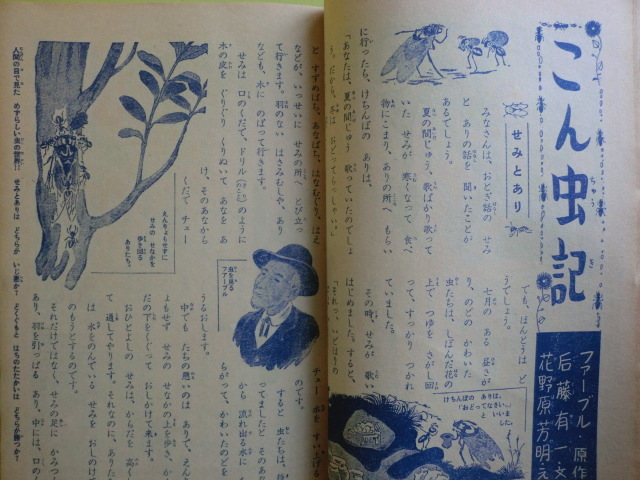 こん虫記
ちゅう
き
ファーブル・原作
后藤有一・文
花野原芳明・え
せみとあり
みなさんは、おとぎ話の せみ
と ありの話を 聞いたことが
あるでしょう。
夏の間じゅう、歌ばかり歌って
いた せみが 寒くなって 食べ
物にこまり、ありの所へ もらい
に行ったら、けちんぼの ありは、
「あなたは、夏の間じゅう 歌っていたのでしょ
う。だから、冬は おどってらっしゃい。」
でも、ほんとうは ど
うでしょう。
七月の ある 昼さが
り、のどの かわいた
虫たちは、しぼんだ花の
上で つゆを さがし回
って、すっかり つかれ
ていました。
その時、せみが 歌い
はじめました。すると、
「それっ、いどほりの
けちんぼの ありは、
「おどってなさい。」
と いいま
した。
と すずめばち、あなばち、はなむぐり、はえ
などが、いっせいに せみの所へ とび立っ
て行きます。羽のない はさみむしや、あり
なども、木に のぼって行きます。
せみは 口のくだで、ドリル のように
木の皮を ぐりぐり くりぬいて あなを あ
け、そのあなから
くだで チュー
チュー 水を すいげる
のです。
すると 虫たちは、
ってましたと そのあな
から 流れ出る水に
らがって、かわいたのどを
うるおします。
中でも たちの悪いのは ありで、えん
りょもせず せみの せなかの上を歩き、か
だの下をくぐって おしかけて来ます。
おひとよしの せみは、からだを 高く
て 通してやります。それなのに、ありた
は 水をのんでいる せみを おしのけて
のもうとするのです。
それだけではなく、せみの足に かみつ
あり、羽を引っぱる あり、中には、口の
虫を見る
ファーブル
えんりょもせずに
せみのせなかを
歩き回る
ありたち。
人間の目で見た めずらしい虫の世界!! せみとありは どちらが いじ悪か? どくぐもと はちのたたかいは どちらが勝つか?